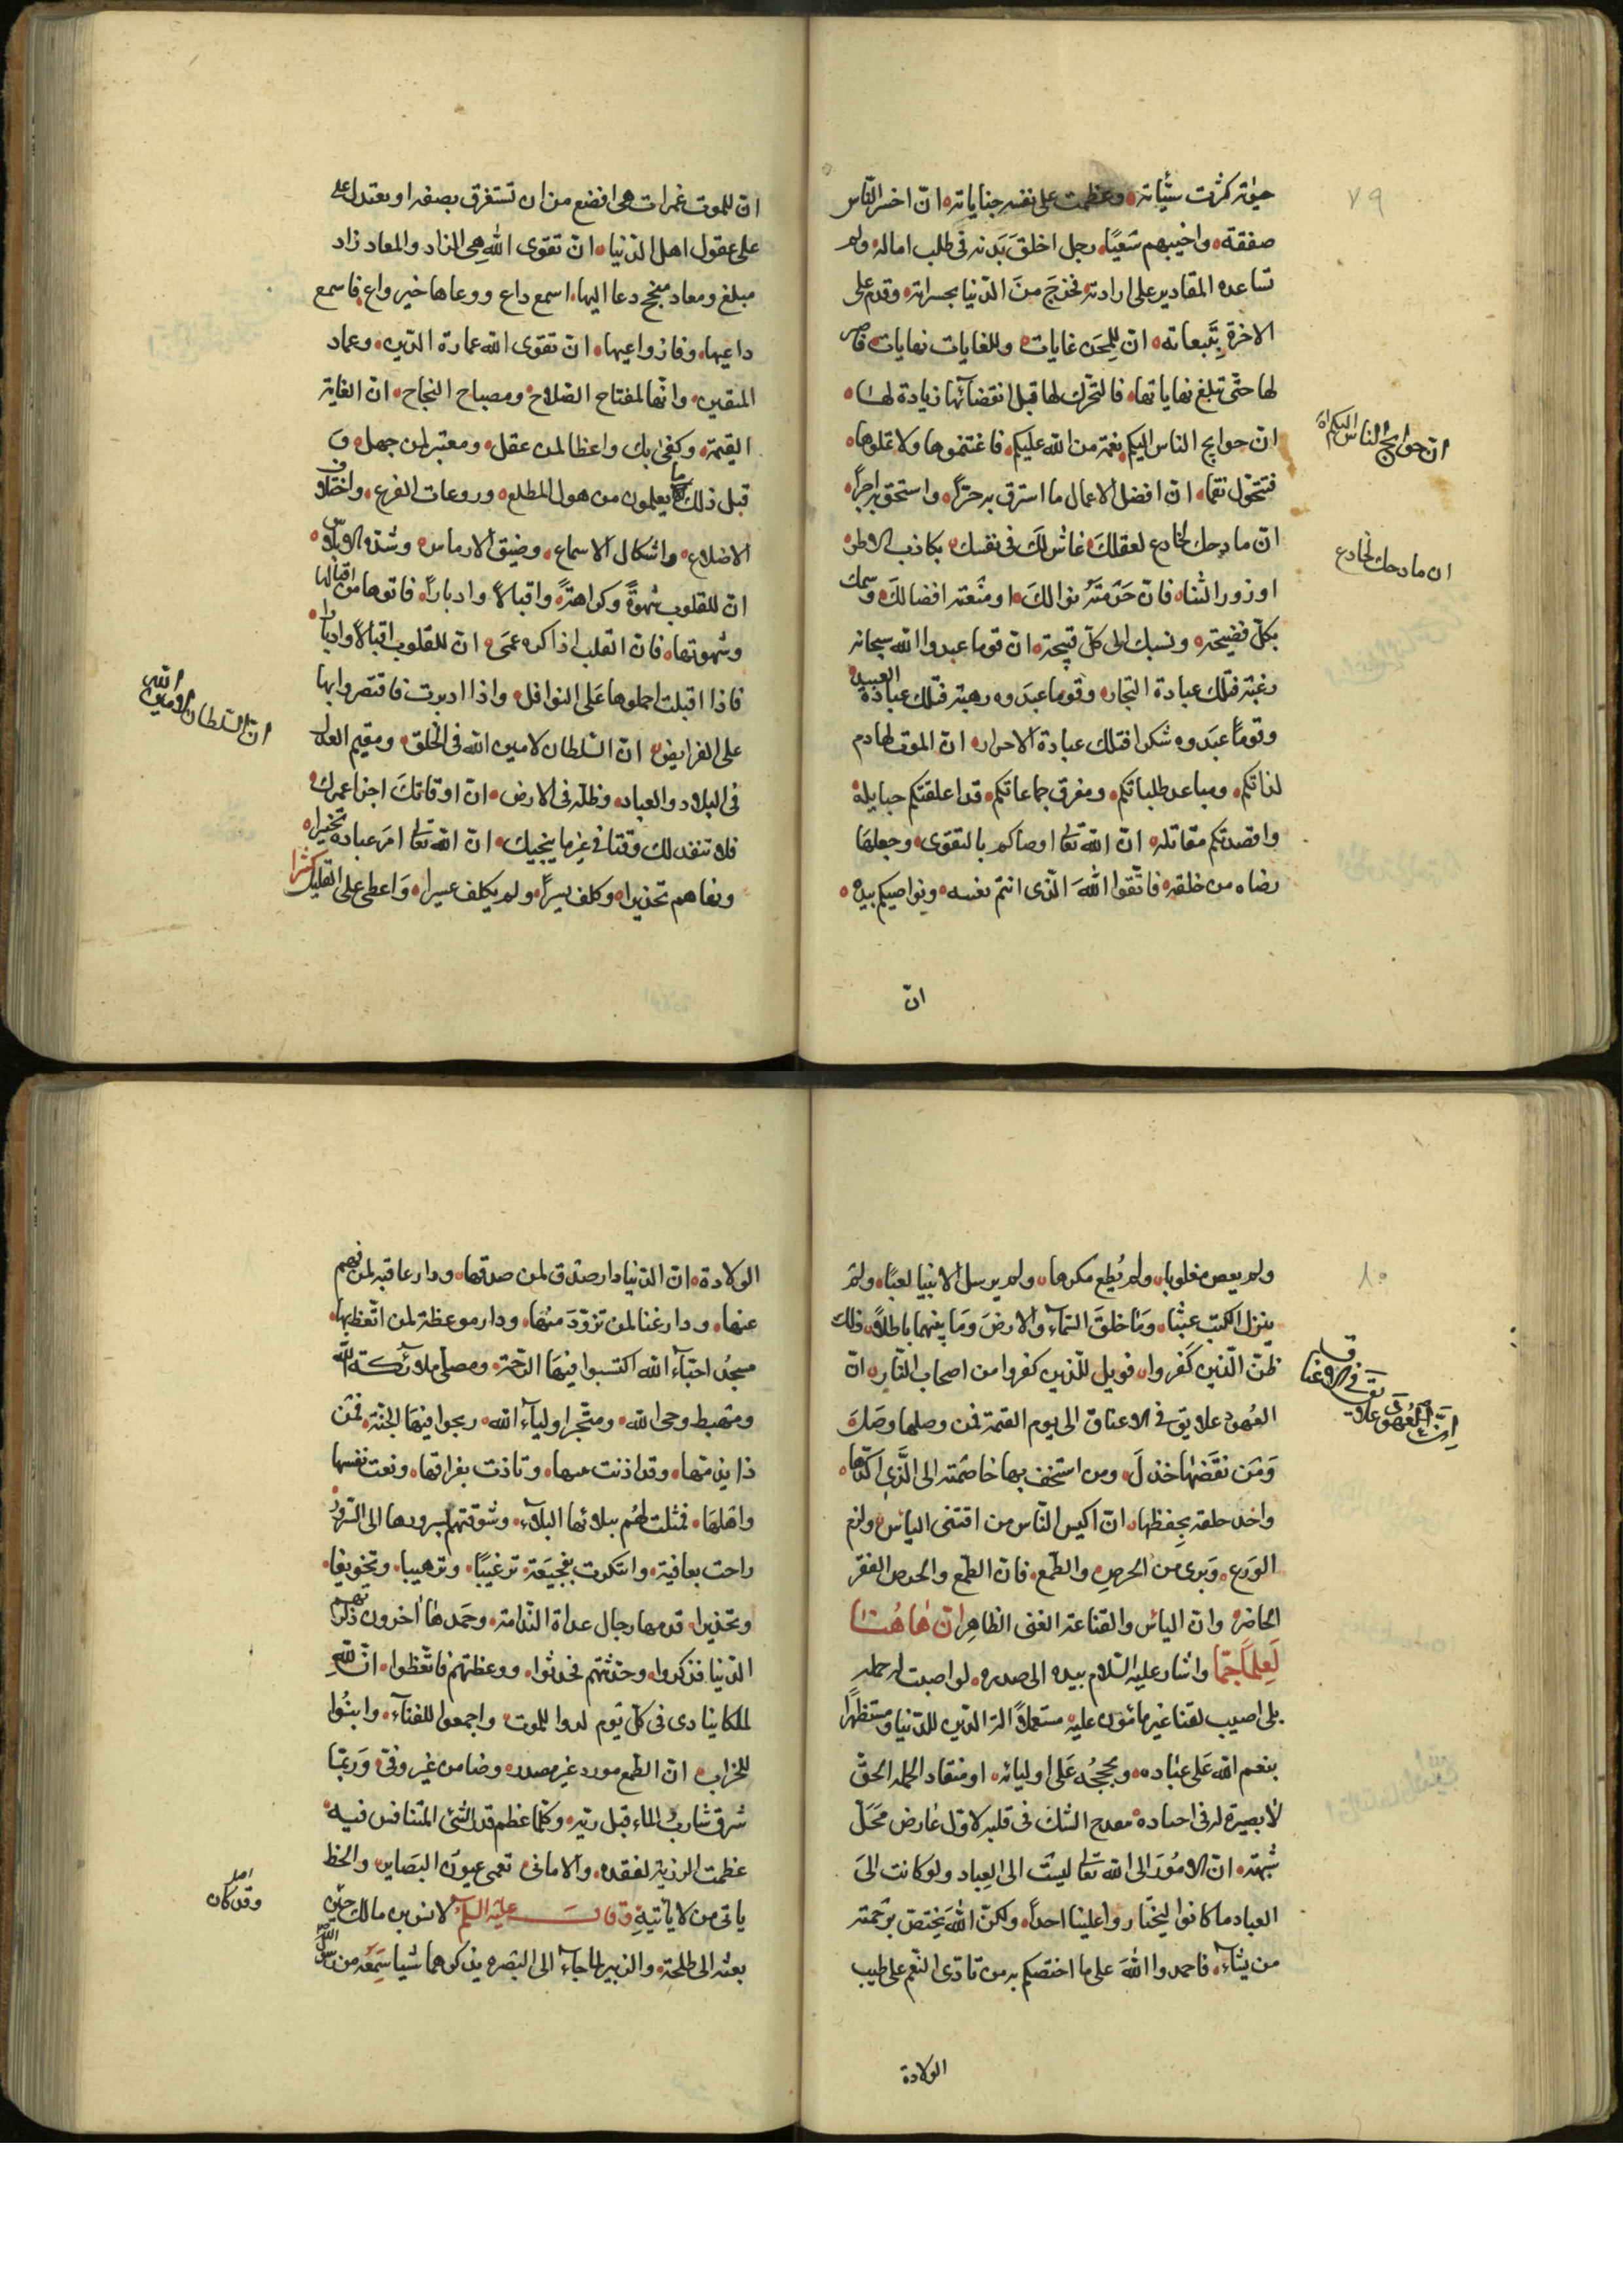 ٧٩
حيوته كثرت سيّئاته وعظمت على نفسه جناياته انّ اخسر الناس
صفقة واخيبهم سَعيًا رجل اخلقَ بَدنه فى طلب اماله ولم
تساعده المقادير على ارادته فخرجَ منَ الدّنيا بحسراته وقدم على
الاخرة بِتَبعاته انّ للِمحَن غايات وللغايات نهايات فاصبر
لها حتّى تبلغ نهاياتها فالتحّرك لها قبل انقضائها زيادة لها
انّ حوايج الناس اليكم نعمة من الله عليكم فاغتنموها ولا تملوها
فتتحّول نقما انّ افضل الاعمال ما استرق به حرّ واستحق به اجرًا
انّ مادحك لخادع لعقلكَ غاشّ لكَ فى نفسك بكاذب الاطراء
او زور الثناء فانّ حَرَمْتَهُ نوالكَ او منعته افضالكَ وسمك
بكلّ فضيحة ونسبك الى كلّ قبيحة انّ قوما عبدوا الله سبحانه
رغبة فتلك عبادة التجار وقوما عبدَوه رهبة فتلك عبادة العبيد
وقومًا عبَدوه شكرا فتلك عبادة الاحرار انّ الموت لهادم
لذاتكم ومباعد طلباتكم ومفرق جماعاتكم قد اعلقتكم حبايله
واقصدتكم مقاتله انّ الله تعا اوصاكم بالتقوى وجعلهَا
رضاه من خلقه فاتّقوا اللهَ الّذى انتم بعينه ونواصيكم بيده
انّ
ان حوايج الناس اليكم
ان مادحك لخادع
انّ للموت غمرات هى افضع من ان تستغرق بصفه او يعتدل على
على عقول اهل الدّنيا انّ تقوى الله هى الزاد والمعاد زاد
مبلغ ومعاد منجح دعا اليها اسمع داع ووعاها خير واع فاسمع
داعيها وفاز واعيها انّ تقوى الله عمارة الدّين وعماد
المتقين وانّها لمفتاح الصّلاح ومصباح النجاح انّ الغاية
القيمة وكفى بك واعظا لمن عقل ومعتبر لمن جهل و
قبل ذلك ما يعلمون من هول المطلع وروعات الفزع واختلاف
الاضلاع واشكال الاسماع وضيق الارماس وشدّة الابلاس
انّ للقلوب شهوةً وكراهةً واقبالاً وادباراً فاتوها من اقبالها
وشهوتها فانّ القلب اذا اكره عمَى انّ للقلوب اقبالاً وادبارا
فاذا اقبلت احملوها عَلى النوافل واذا ادبرت فاقتصروا بها
على الفرايض انّ السّلطان لامين الله فى الخلق ومقيم العدل
فى البلاد والعباد وظلّه فى الارض انّ اوقاتكَ اجزا عمرك
فلا تنفد لك وقتا فى غير ما ينجيك انّ الله تعا امَر عباده تخييرا
ونهاهم تحذيرا وكلف يسيراً ولم يكلف عسيرا وَاعطى على القليل كثيرا
انّ السّلطان لامين الله
٨٠
ولم يعص مغلوبا ولم يُطع مكرها ولم يرسل الانبيا لعبًا ولم
ينزل الكتب عبثًا وَمَا خلقَ السّماءِ والارضَ وَمَا بينهما باطلاً ذلك
ظنّ الّذين كَفروا فويل للّذين كفروا من اصحاب النّار انّ
العُهودَ علايق فى الاعناق الى يوم القيمة فمن وصلها وصَلهَ
وَمَن نقَضها خذلَ ومن استخف بها خاصَمته الى الّذى اكّدها
واخذ خلقه بِحفظها انّ اكيس النّاس من اقتنى الياس ولزم
الوَرع وَبرى من الحرصِ والطّمع فانّ الطّمع والحرص الفقر
الحاضر وانّ الياس والقناعة الغنى الظاهر انّ هاهُنا
لَعِلماً جّمًا واشار عليه السّلام بيده الى صدره لو اصبت له حمله
بلى اصيب لقنا غير مأمون عليه مستعملاً الة الدّين للدّنيا ومستظهرًا
بنعم الله عَلى عبَاده وبحججُه عَلى اوليائه او منقاد الحملة الحقّ
لا بصيرة له فى احناده يقدح الشك فى قلبه لاوّل عارض مَحَلّ
شبهة انّ الامُورَ الى الله تعالى ليسَت الى العِباد ولو كانت الىَ
العباد ما كانوا ليختَاروا علينا احداً ولكنّ اللهَ يَختصّ برَحمته
من يشاء فاحمدوا اللهَ على ما اختصّكم به من بادى النّعم على طيب
الولادة
انّ العُهود علايق فى الاعناق
الولادة انّ الدّنيا دار صدق لمن صدقها ودار عافية لمن فهم
عنها ودار غنا لمن تزوّدَ منُها ودار موعظة لمن اتّعظ بها
مسجدُ احبّآءَ الله اكتسبوا فيهَا الرّحمة ومصلّى ملائكة الله
ومهبط وحى الله ومتجر اولياء الله ربحوا فيهَا الجنّة فمن
ذا يذمّها وقد اذنت ببينها ونادت بفراقها ونعت نفسها
واهلهَا فمثلت لهُم ببلائها البلاء وشوقتهم بسرورها الى السّرور
راحت بعافية وابتكرت بفجيعَة ترغيبًا وترهيبا وتخويفا
وتحذيرا فذمها رجال غداة النّدامة وحَمدها اخرون ذكرتهم
الدّنيا فذكروا وحدّثتهم فحدثوا ووعظتهم فاتّعظوا انّ للهِ
لملكا ينادى فى كلّ يَوم لدوا للموت واجمعوا للفنآء وابنُوا
للخراب انّ الطّمع مورد غير مصدر وضامن غير وفىّ وَربمّا
شرق شاربُ الماء قبل ريّه وكلّما عظم قدر الشّئ المتنافس فيه
عظمت الرزية لفقده والامانى تعمى عيوَن البَصاير والحظ
ياتى من لا يأتيةِ وقال عليه السلم لانس بن مالك حين
بعثه الى طلحة والزبير لما جاءآ الى البَصره يذكرهما شيا سَمعَه من رسول الله
اصل
وقد كان